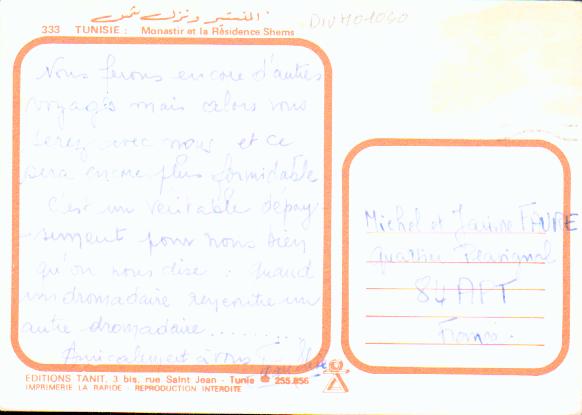 المنستير ونزل شمس
DIV401060
333 TUNISIE : Monastir et la Résidence Shems
Nous ferons encore d'autres
voyages mais alors vous
serez avec nous et ce
sera encore plus formidable
C'est un véritable dépay-
sement pour nous bien
qu'on nous dise : quand
un dromadaire rencontre un
autre dromadaire........
Amicalement à vous
Michel et Janine FAURE
quartier
84 APT
France.
EDITIONS TANIT, 3 bis, rue Saint Jean - Tunis ☎ 255.856
IMPRIMERIE LA RAPIDE - REPRODUCTION INTERDITE